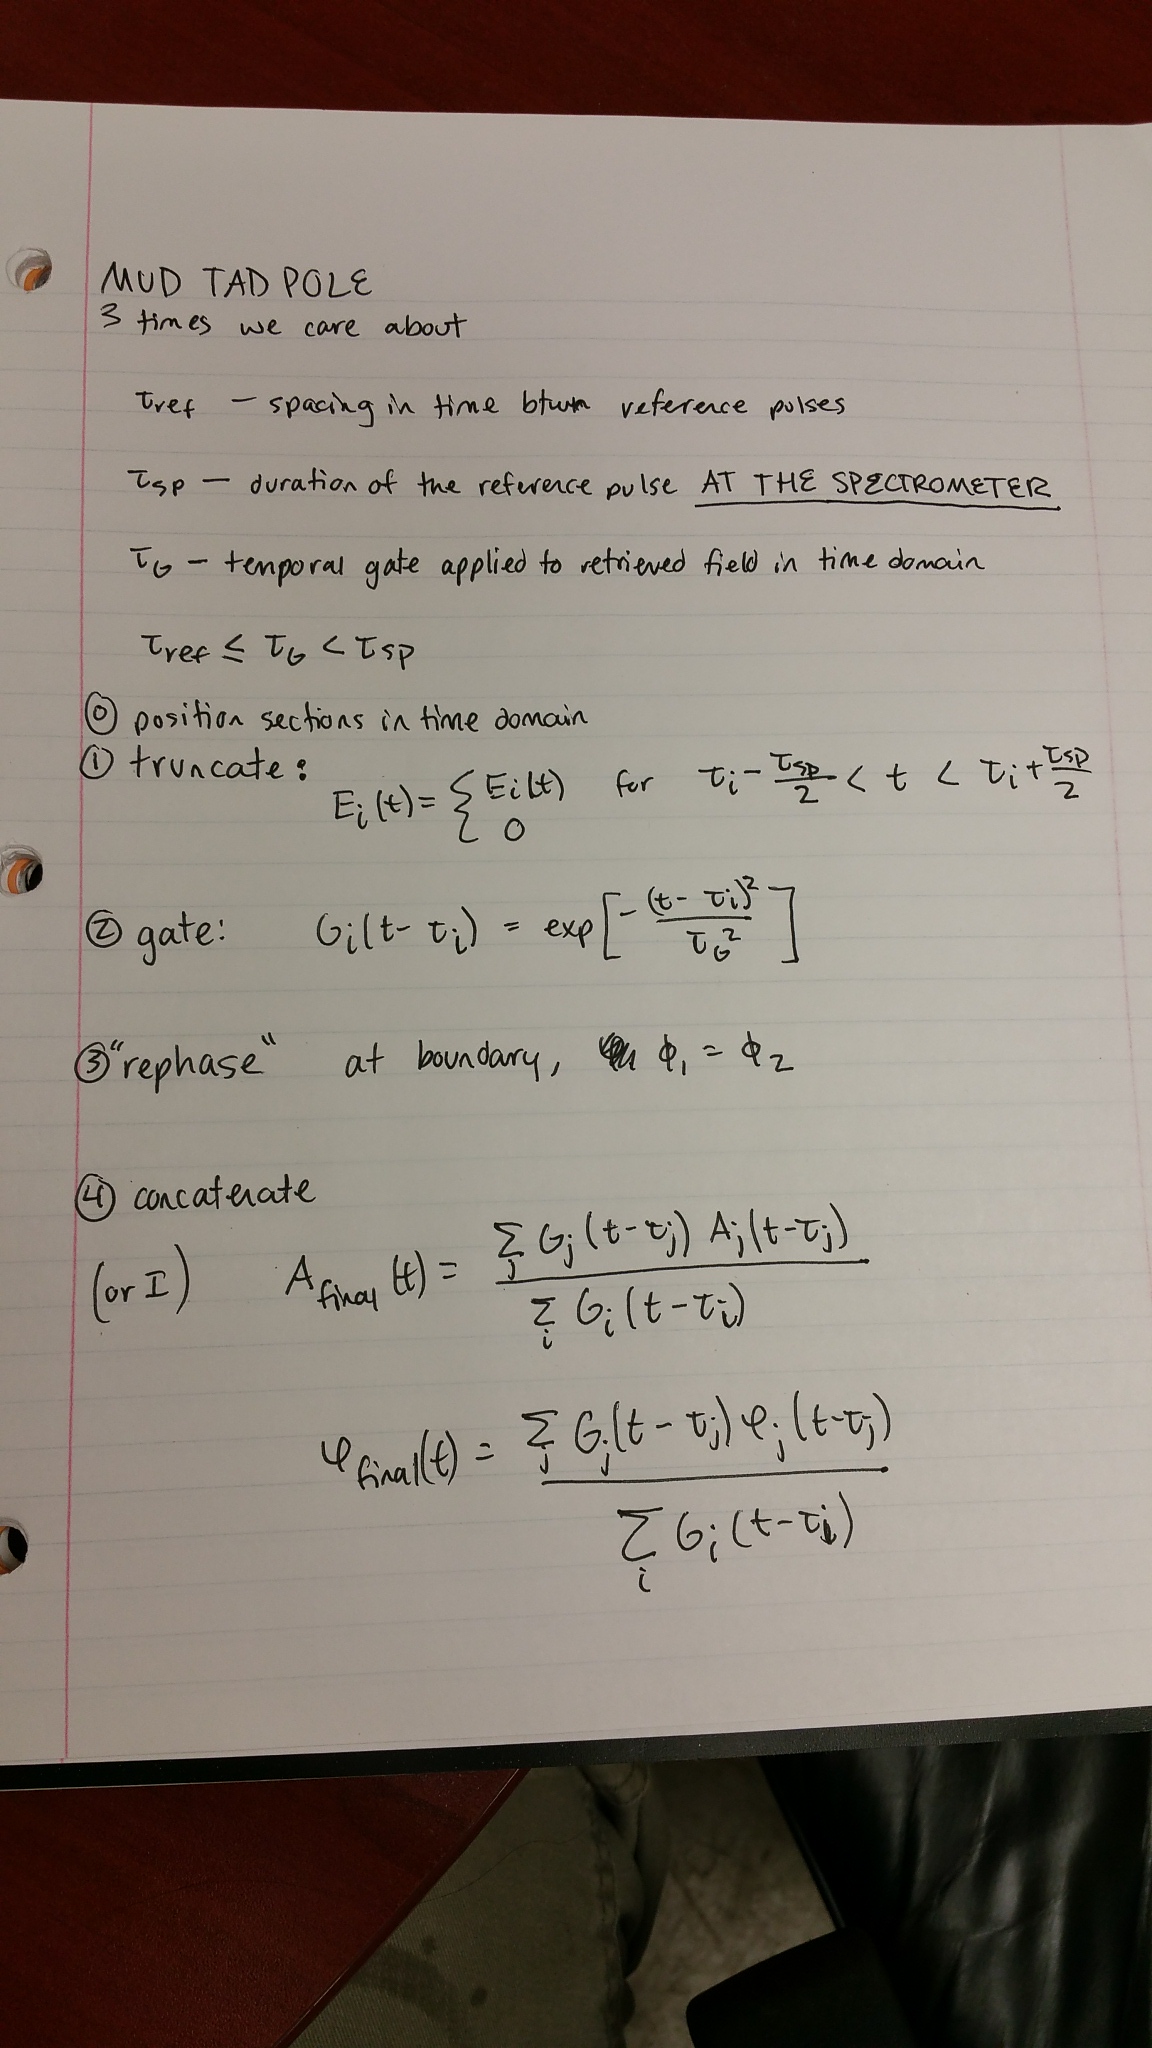 MUD TADPOLE
3 times we care about
τref — spacing in time btwn reference pulses
τsp — duration of the reference pulse AT THE SPECTROMETER
τG — temporal gate applied to retrieved field in time domain
τref ≤ τG < τsp
⓪ position sections in time domain
① truncate:
Ei(t) = { Ei(t) for τi - τsp/2 < t < τi + τsp/2
0
② gate: Gi(t - τi) = exp[-(t - τi)²/τG²]
③ "rephase" at boundary, ϕ1 = ϕ2
④ concatenate
(or I) Afinal(t) = Σj Gj(t-τj) Aj(t-τj) / Σi Gi(t-τi)
φfinal(t) = Σj Gj(t-τj) φj(t-τj) / Σi Gi(t-τi)